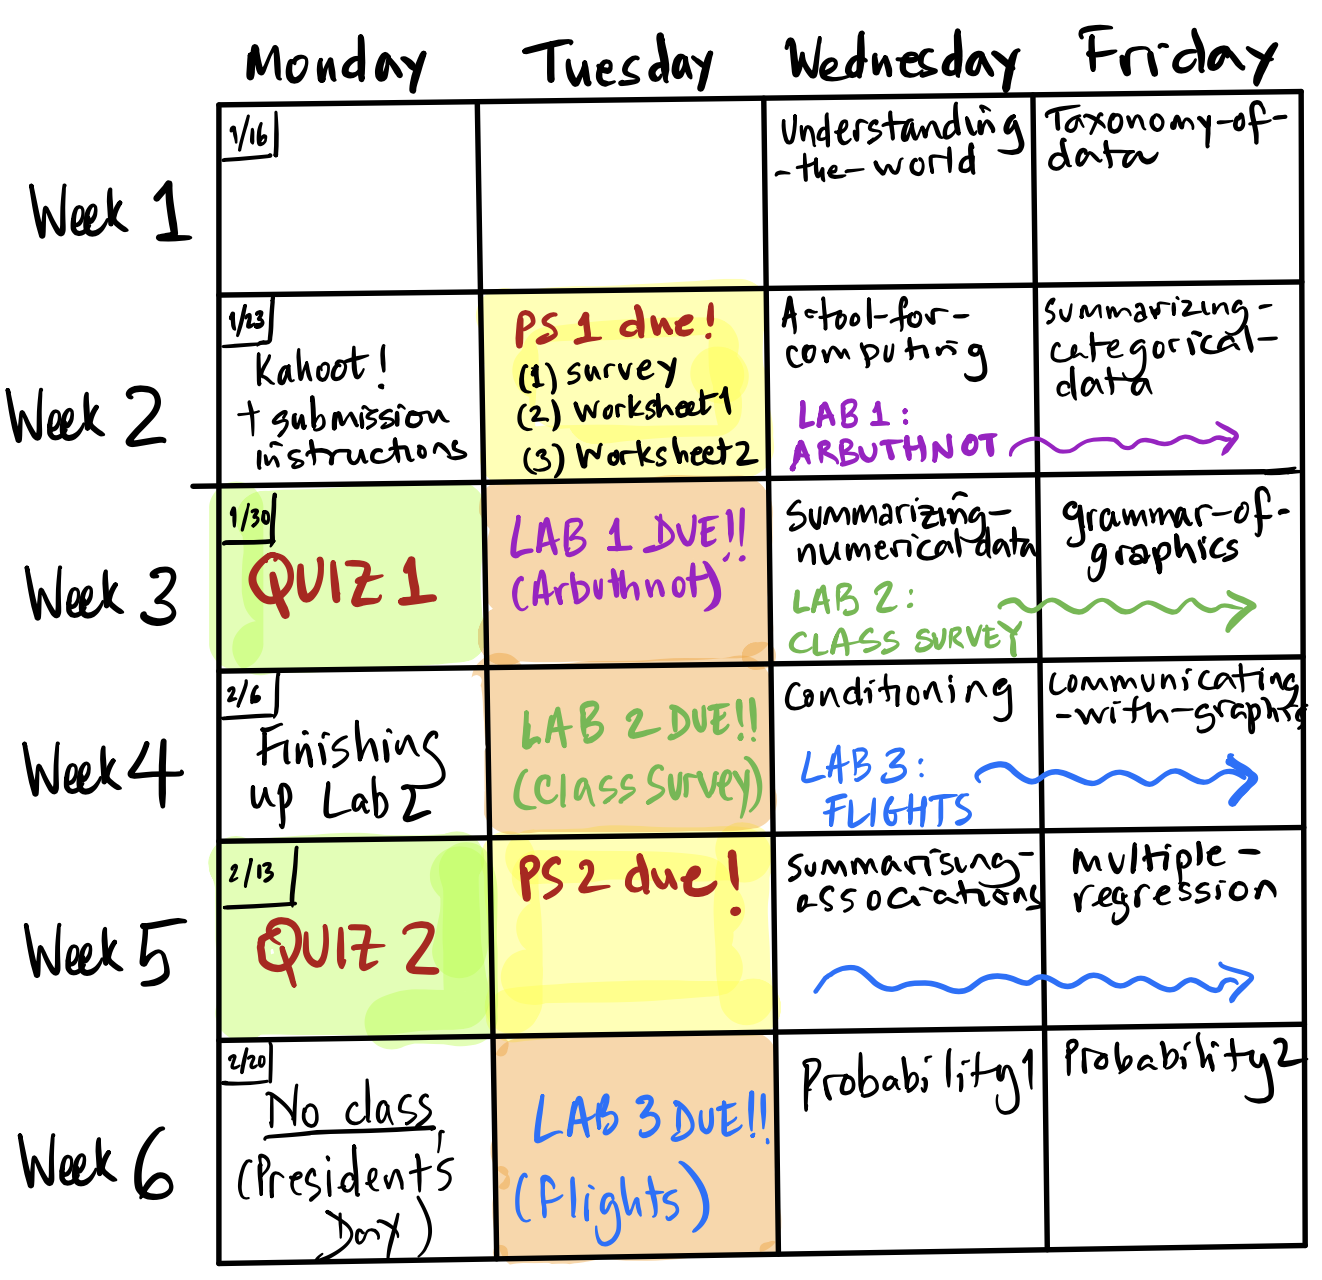 Monday Tuesday Wednesday Friday
Week 1
1/16
Understanding
-the-world
Taxonomy-of-
data
Week 2
1/23
Kahoot!
+ submission
instructions
PS 1 due!
(1) survey
(2) Worksheet 1
(3) Worksheet 2
A-tool-for-
computing
LAB 1:
ARBUTHNOT
Summarizing-
categorical-
data
Week 3
1/30
QUIZ 1
LAB 1 DUE!!
(Arbuthnot)
Summarizing-
numerical data
LAB 2:
CLASS SURVEY
grammar-of-
graphics
Week 4
2/6
Finishing
up Lab 2
LAB 2 DUE!!
(Class Survey)
Conditioning
LAB 3:
FLIGHTS
Communicating
-with-graphics
Week 5
2/13
QUIZ 2
PS 2 due!
summarising-
associations
multiple-
regression
Week 6
2/20
No class
(President's
Day)
LAB 3 DUE!!
(Flights)
Probability 1
Probability 2